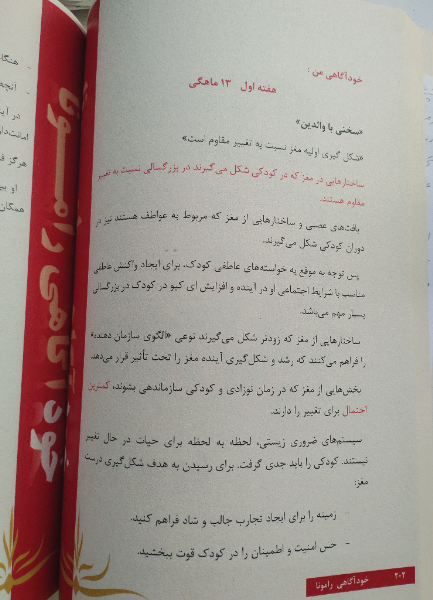 هنگا
آنچه
در آینـ
امانت‌دار
هرگز ف
او بیـ
همگان
خودآگاهی رامونا
خودآگاهی من :
هفته اول ۱۳ ماهگی
«سخنی با والدین»
«شکل گیری اولیه مغز نسبت به تغییر مقاوم است»
ساختارهایی در مغز که در کودکی شکل می‌گیرند در بزرگسالی نسبت به تغییر
مقاوم هستند.
بافت‌های عصبی و ساختارهایی از مغز که مربوط به عواطف هستند نیز در
دوران کودکی شکل می‌گیرند.
پس توجه به موقع به خواسته‌های عاطفی کودک، برای ایجاد واکنش عاطفی
مناسب با شرایط اجتماعی او در آینده و افزایش ای کیو در کودک در بزرگسالی
بسیار مهم می‌باشد.
ساختارهایی از مغز که زودتر شکل می‌گیرند نوعی «الگوی سازمان دهنده»
را فراهم می‌کنند که رشد و شکل‌گیری آینده مغز را تحت تأثیر قرار می‌دهد.
بخش‌هایی از مغز که در زمان نوزادی و کودکی سازماندهی بشوند، کمترین
احتمال برای تغییر را دارند.
سیستم‌های ضروری زیستی، لحظه به لحظه برای حیات در حال تغییر
نیستند. کودکی را باید جدی گرفت. برای رسیدن به هدف شکل‌گیری درست
مغز:
- زمینه را برای ایجاد تجارب جالب و شاد فراهم کنید.
- حس امنیت و اطمینان را در کودک قوت ببخشید.
۲۰۲ خودآگاهی رامونا